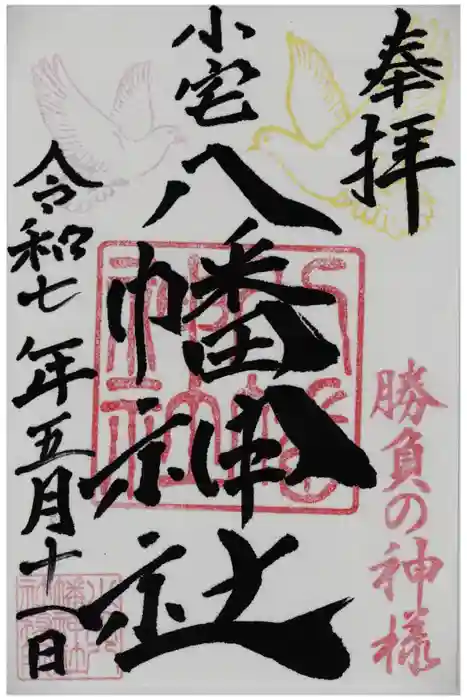 奉拝
勝負の神様
小宅
八幡神社
令和七年五月十八日
八幡神社